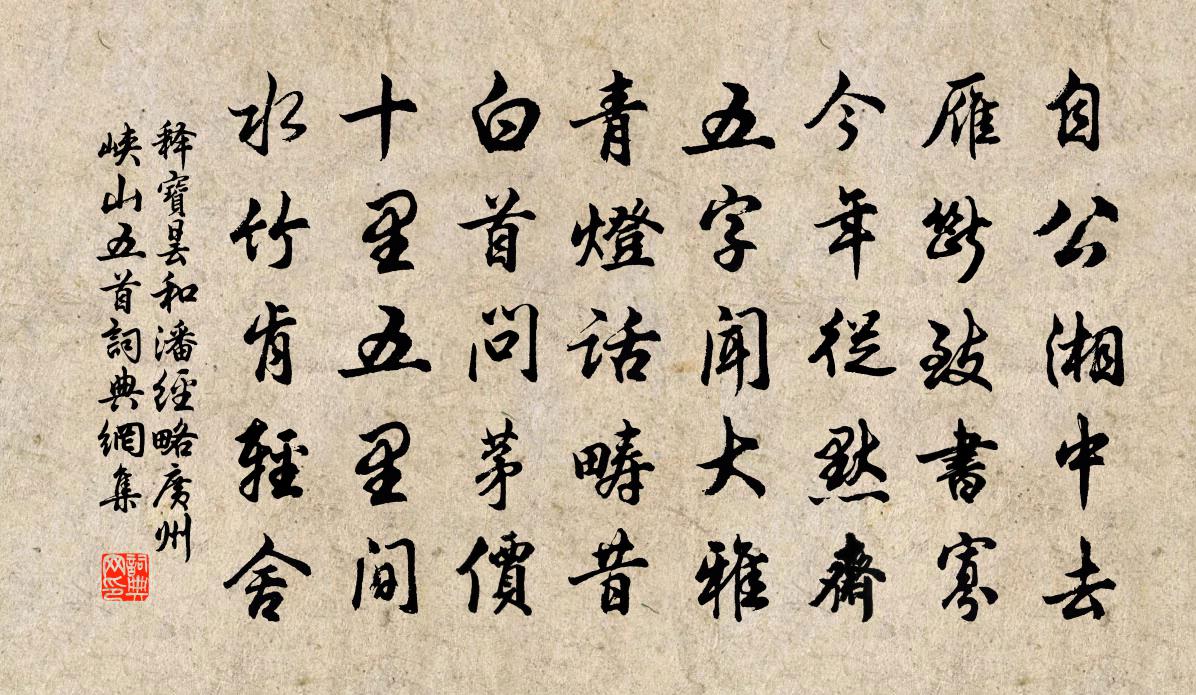 自公湘中去
雁斷致書寡
今年從默齋
五字聞大雅
青燈話疇昔
白首問茅價
十里五里間
水竹肯輕舍
释寶曇和潘經略廣州
峽山五首詞典網集
詞典网印